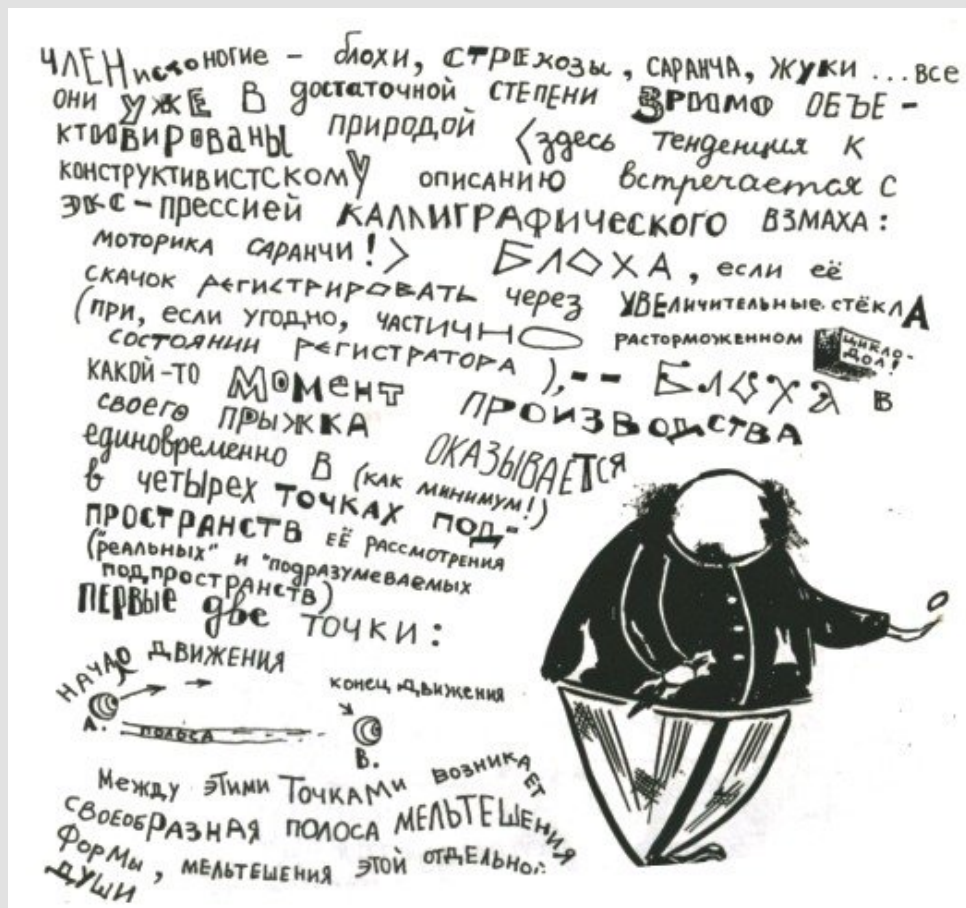 ЧЛЕНистоногие – блохи, СТРЕКОЗЫ, САРАНЧА, ЖУКИ ... все
они УЖЕ В достаточной СТЕПЕНИ ЗРИМО ОБЪЕ-
КТИВИРОВАНЫ ПРИРОДОЙ <здесь тенденция К
КОНСТРУКТИВИСТСКОМУ ОПИСАНИЮ встречается с
ЭКС-прессией КАЛЛИГРАФИЧЕСКОГО ВЗМАХА:
МОТОРИКА САРАНЧИ!> БЛОХА, если её
СКАЧОК РЕГИСТРИРОВАТЬ через УВЕЛИЧИТЕЛЬНЫЕ СТЁКЛА
(ПРИ, ЕСЛИ УГОДНО, ЧАСТИЧНО РАСТОРМОЖЕННОМ ЦИКЛО-
ДОЛ!
СОСТОЯНИИ РЕГИСТРАТОРА),-- БЛОХА В
КАКОЙ-ТО МОМЕНТ ПРОИЗВОДСТВА
СВОЕГО ПРЫЖКА ОКАЗЫВАЕТСЯ
единовременно В (КАК МИНИМУМ!)
в четырех ТОЧКАХ ПОД-
ПРОСТРАНСТВ ЕЁ РАССМОТРЕНИЯ
("реальных" и "подразумеваемых
подпространств)
ПЕРВЫЕ две ТОЧКИ:
НАЧАЛО ДВИЖЕНИЯ
КОНЕЦ ДВИЖЕНИЯ
А. ПОЛОСА В.
Между ЭТИМИ ТОЧКАМИ ВОЗНИКАЕТ
СВОЕОБРАЗНАЯ ПОЛОСА МЕЛЬТЕШЕНИЯ
ФОРМЫ, МЕЛЬТЕШЕНИЯ ЭТОЙ ОТДЕЛЬНОЙ
ДУШИ